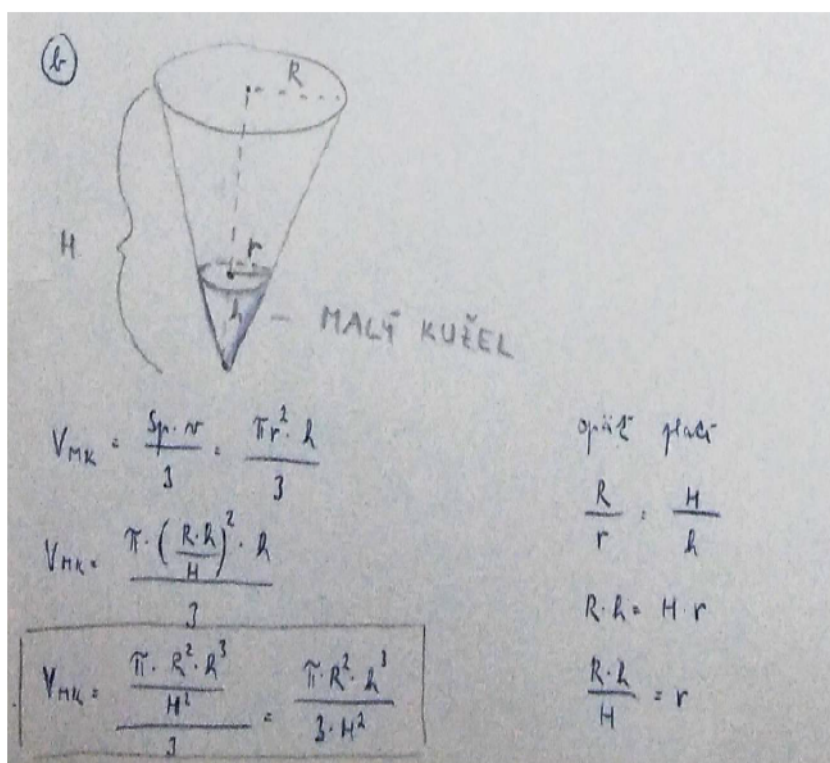 b
R
H
r
h
MALÝ KUŽEL
V_MK = Sp·v/3 = πr²·h/3
V_MK = π·(R·h/H)²·h/3
V_MK = (π·R²·h³/H²)/3 = π·R²·h³/(3·H²)
opäť platí
R/r = H/h
R·h = H·r
R·h/H = r